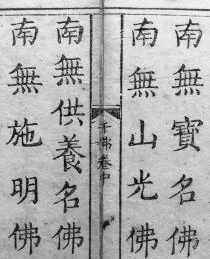 南無寶名佛
南無山光佛
千佛卷中
南無供養名佛
南無施明佛